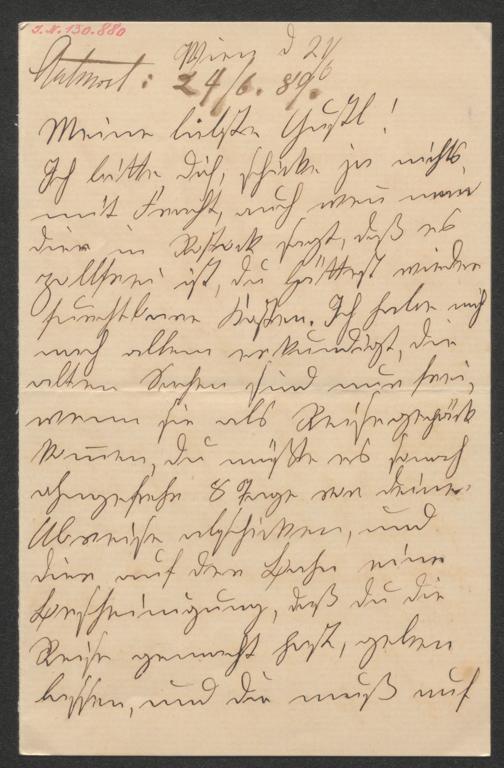 J. N. 130.880
Wien d 21/6
Antwort: 24/6. 89.
Meine liebste Gustl!
Ich bitte dich, schicke ja nichts
mit Fracht, auch wenn man
dier in Rostock sagt, daß es
zollfrei ist, du hättest wieder
furchtbare Kosten. Ich habe mich
nach allem erkundigt, die
alten Sachen sind nur frei,
wenn sie als Reisegepäck
kom̄en, du müßte es sonach
ohngefähr 8 Tage vor deiner
Abreise abschicken, und
dier auf der Bahn eine
Bescheinigung, daß du die
Reise gemacht hast, geben
lassen, und die muß auf